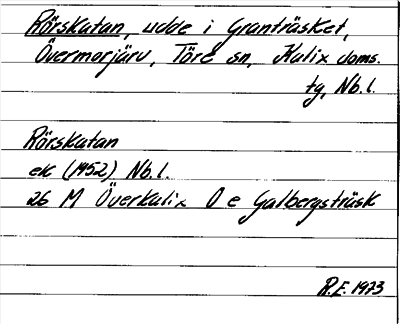 Rörskatan, udde i Granträsket,
Övermorjärv, Töre sn, Kalix doms.
tg, Nb.l.
Rörskatan
ek (1952) Nb.l.
26 M Överkalix O e Galbergsträsk
R.E. 1973